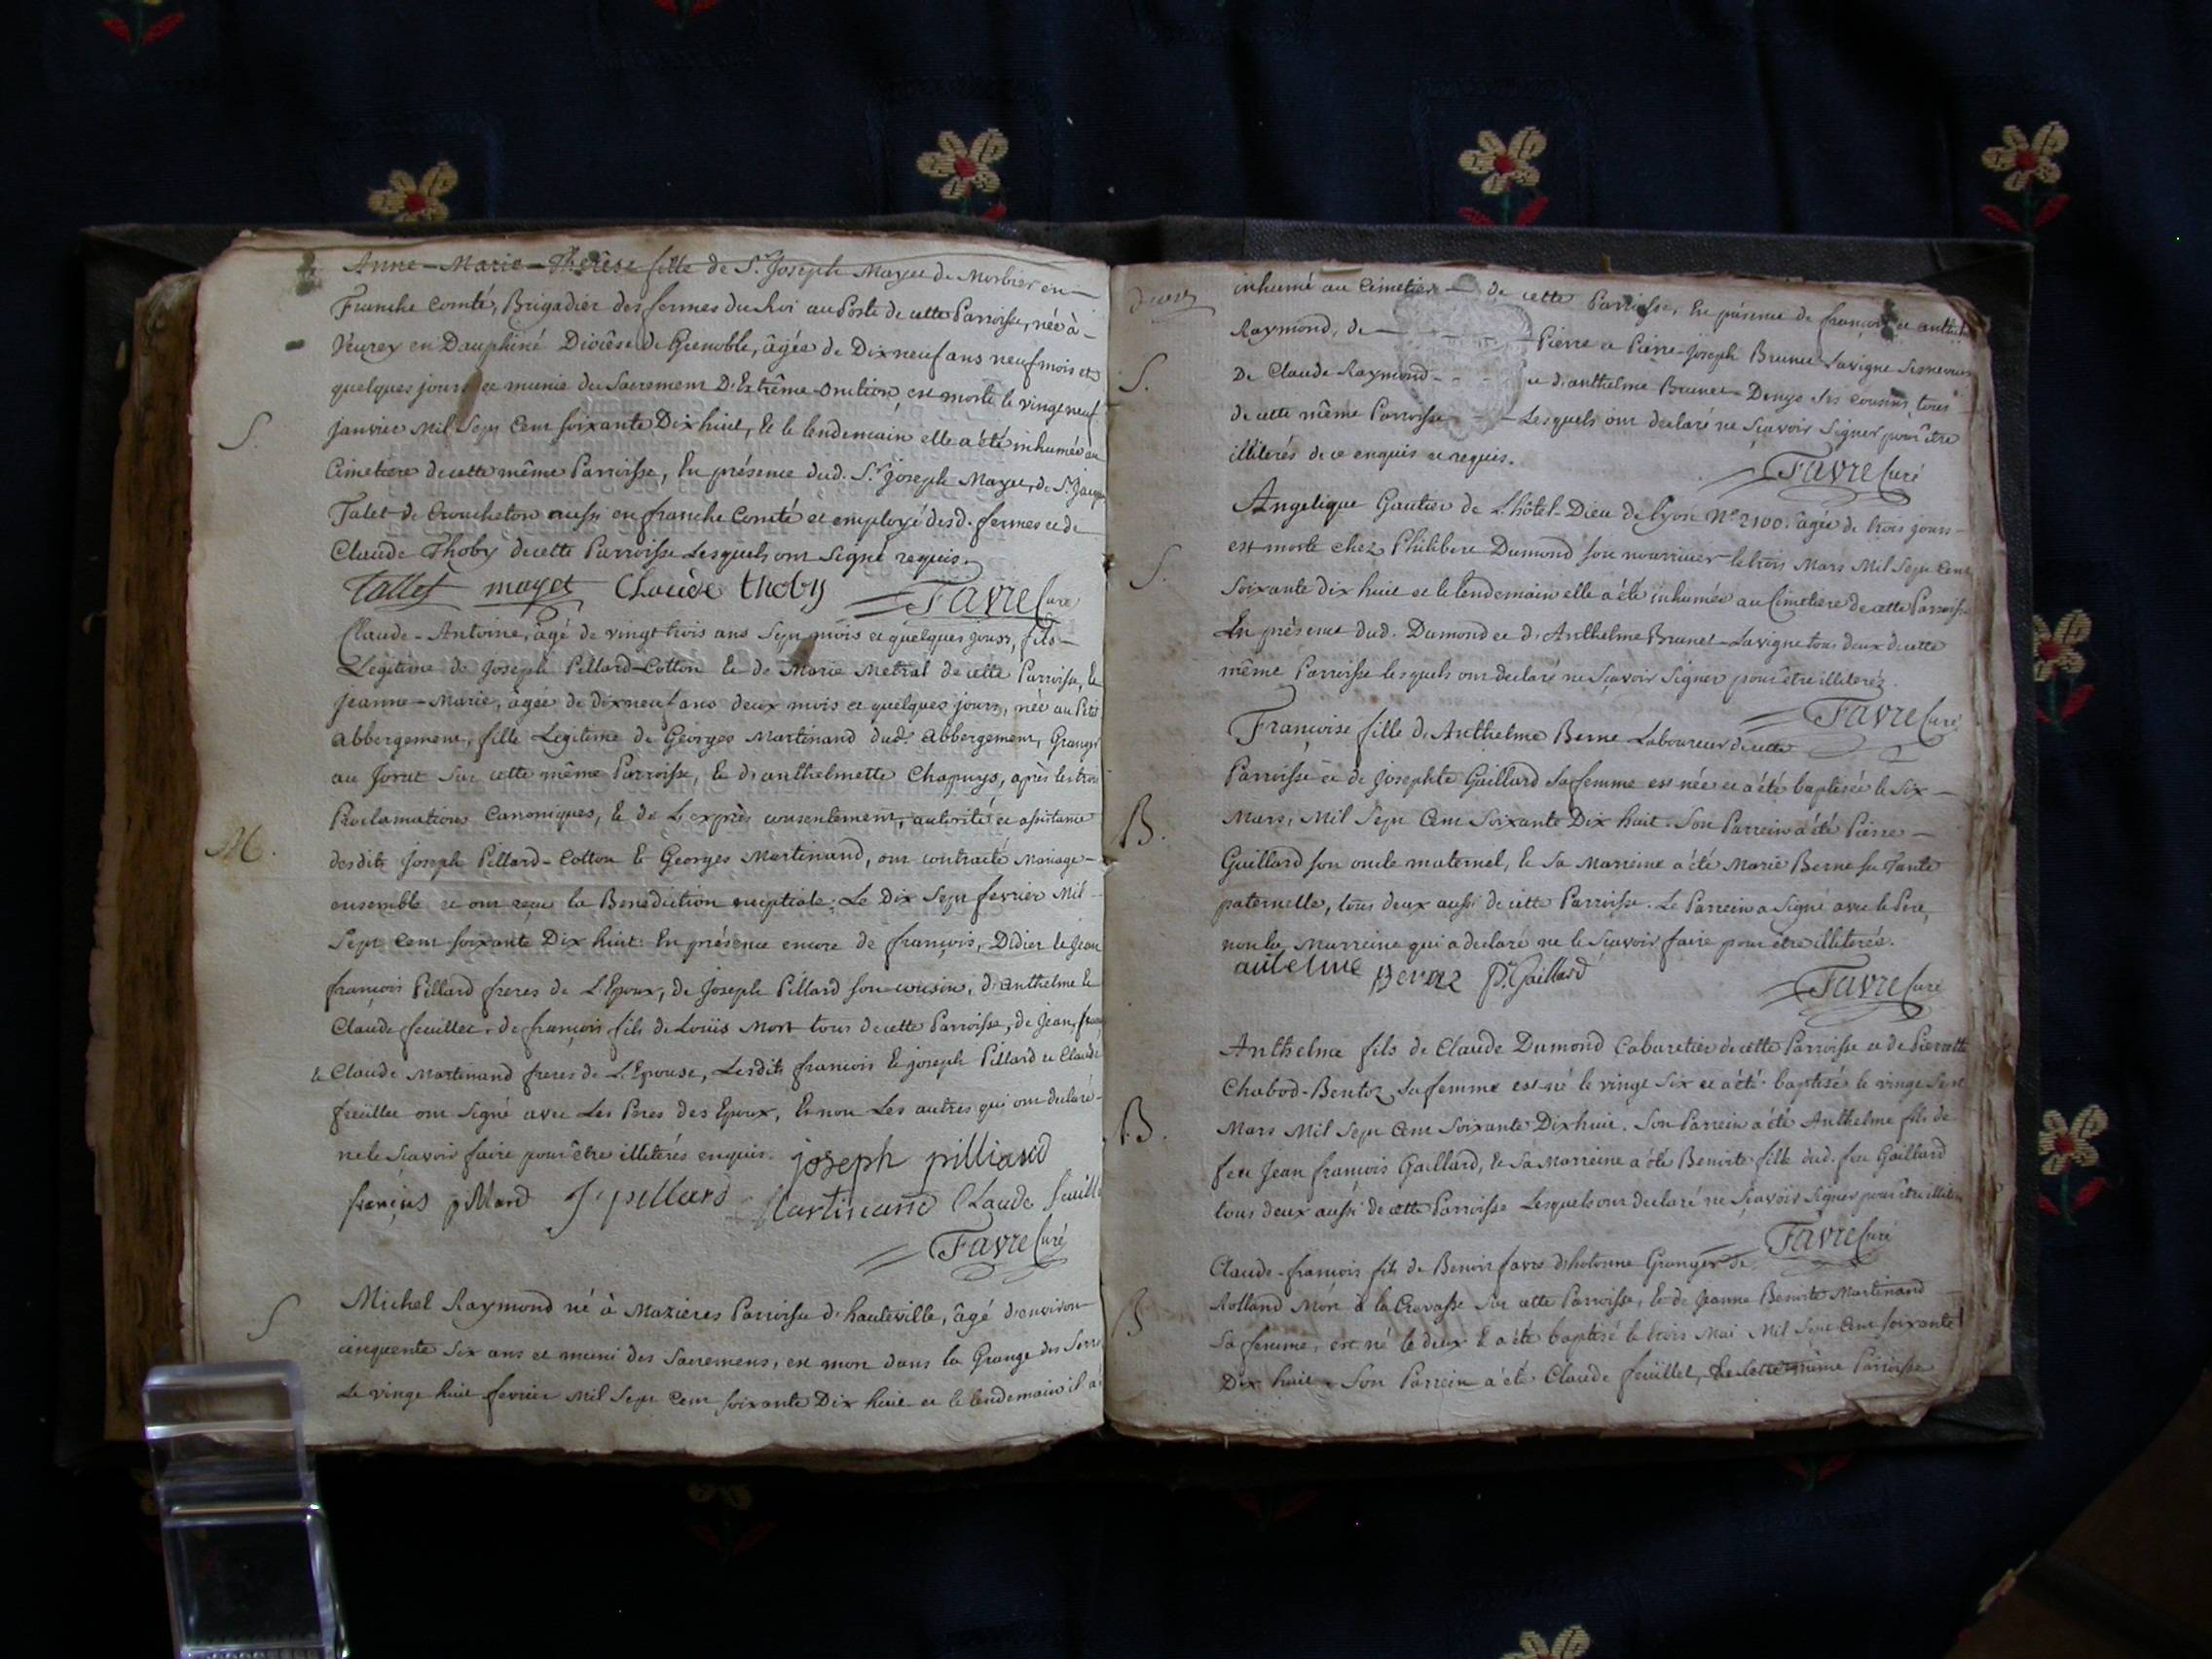 Anne-Marie-Thérèse fille de Sr. Joseph Mayet de Morbier en
Franche Comté, Brigadier des fermes du Roi au Poste de cette Parroisse, née à
Veurey en Dauphiné Diocèse de Grenoble, âgée de Dix neuf ans neuf mois et
quelques jours et munie du Sacrement D'Extrême-onction est morte le vingt neuf
S.
janvier Mil Sept Cent soixante Dix huit, & le lendemain elle a été inhumée au
Cimetiere de cette même Parroisse, En présence dud. Sr. joseph Mayet, de Sr.
Talet de aussi en franche Comté et employé desd. fermes et de
Claude Thoby de cette Parroisse Lesquels ont Signé requis.
Tallet mayet Claude thoby Favre Curé
Claude-Antoine, âgé de vingt trois ans Sept mois et quelques jours, fils
Legitime de Joseph Pillard-Cotton & de Marie Metral de cette Parroisse, &
jeanne-Marie, âgée de dix neuf ans deux mois et quelques jours, née au Petit
abbergement, fille Legitime de Georges Martinand dud. abbergement, Granger
au Jorat Sur cette même Parroisse, & d'anthelmette Chapuys, après les trois
Proclamations Canoniques, & de L'exprès consentement, autorité et assistance
M.
desdits Joseph Pillard-Cotton & Georges Martinand, ont contracté Mariage
ensemble et ont reçu la Benediction nuptiale; Le Dix Sept fevrier Mil
Sept Cent soixante Dix huit. En présence encore de françois, Didier & Jean
françois Pillard freres de L'Epoux, de Joseph Pillard son cousin, d'anthelme &
Claude feuillet, de françois fils de Loüis Mort tous de cette Parroisse, de Jean,
& Claude Martinand freres de L'Epouse, Lesdits françois & joseph Pillard et Claude
feüillet ont Signé avec Les Peres des Epoux, & non Les autres qui ont declaré
ne le Sçavoir faire pour être illiterés enquis. joseph pilliard
françois pillard J pillard Martinand Claude feuille
Favre Curé
Michel Raymond né à Mazieres Parroisse d'hauteville, âgé d'environ
S
cinquante Six ans et muni des Sacremens, est mort dans la Grange des Serre
Le vingt huit fevrier Mil Sept Cent soixante Dix huit et le lendemain il a
inhumé au Cimetiere de cette Parroisse, En présence de françois et
Raymond, de Pierre et Pierre-Joseph Brunet Lavigne
S.
De Claude Raymond et d'anthelme Brunet Ses cousins, tous
de cette même Parroisse Lesquels ont declaré ne Sçavoir Signer pour être
illiterés de ce enquis et requis.
Favre Curé
Angelique Gautier de L'hôtel-Dieu de Lyon No. 2100. âgée de trois jours
est morte chez Philibert Dumond son nourricier le trois Mars Mil Sept Cent
S.
Soixante dix huit et le lendemain elle a été inhumée au Cimetiere de cette Parroisse
En présence dud. Dumond et d'Anthelme Brunet-Lavigne tous deux de cette
même Parroisse lesquels ont declaré ne Sçavoir Signer pour être illiterés.
Favre Curé
Françoise fille d'Anthelme Berne Laboureur de cette
Parroisse et de Josephte Gaillard Sa femme est née et a été baptisée le Six
B.
Mars, Mil Sept Cent Soixante Dix huit. Son Parrein a été Pierre
Gaillard son oncle maternel, & Sa Marreine a été Marie Berne Sa Tante
paternelle, tous deux aussi de cette Parroisse. Le Parrein a Signé avec le Pere,
non la Marreine qui a declaré ne le Sçavoir faire pour être illiterée.
antelme Berne P. Gaillard
Favre Curé
Anthelme fils de Claude Dumond Cabaretier de cette Parroisse et de Pierrette
Chabod-Bentoz Sa femme est né le vingt Six et a été baptisé le vingt Sept
B.
Mars Mil Sept Cent Soixante Dix huit. Son Parrein a été Anthelme fils de
feu Jean françois Gaillard, & Sa Marreine a été Benoite fille dud. feu Gaillard
tous deux aussi de cette Parroisse Lesquels ont declaré ne Sçavoir Signer pour être
Favre Curé
Claude-françois fils de Benoit favre d'hotonne Granger de
Rolland Mon à la Crevasse Sur cette Parroisse, & de Jeanne Benoite Martinand
B
Sa femme, est né le deux & a été baptisé le trois Mai Mil Sept Cent soixante
Dix huit. Son Parrein a été Claude feüillet, de cette même Parroisse